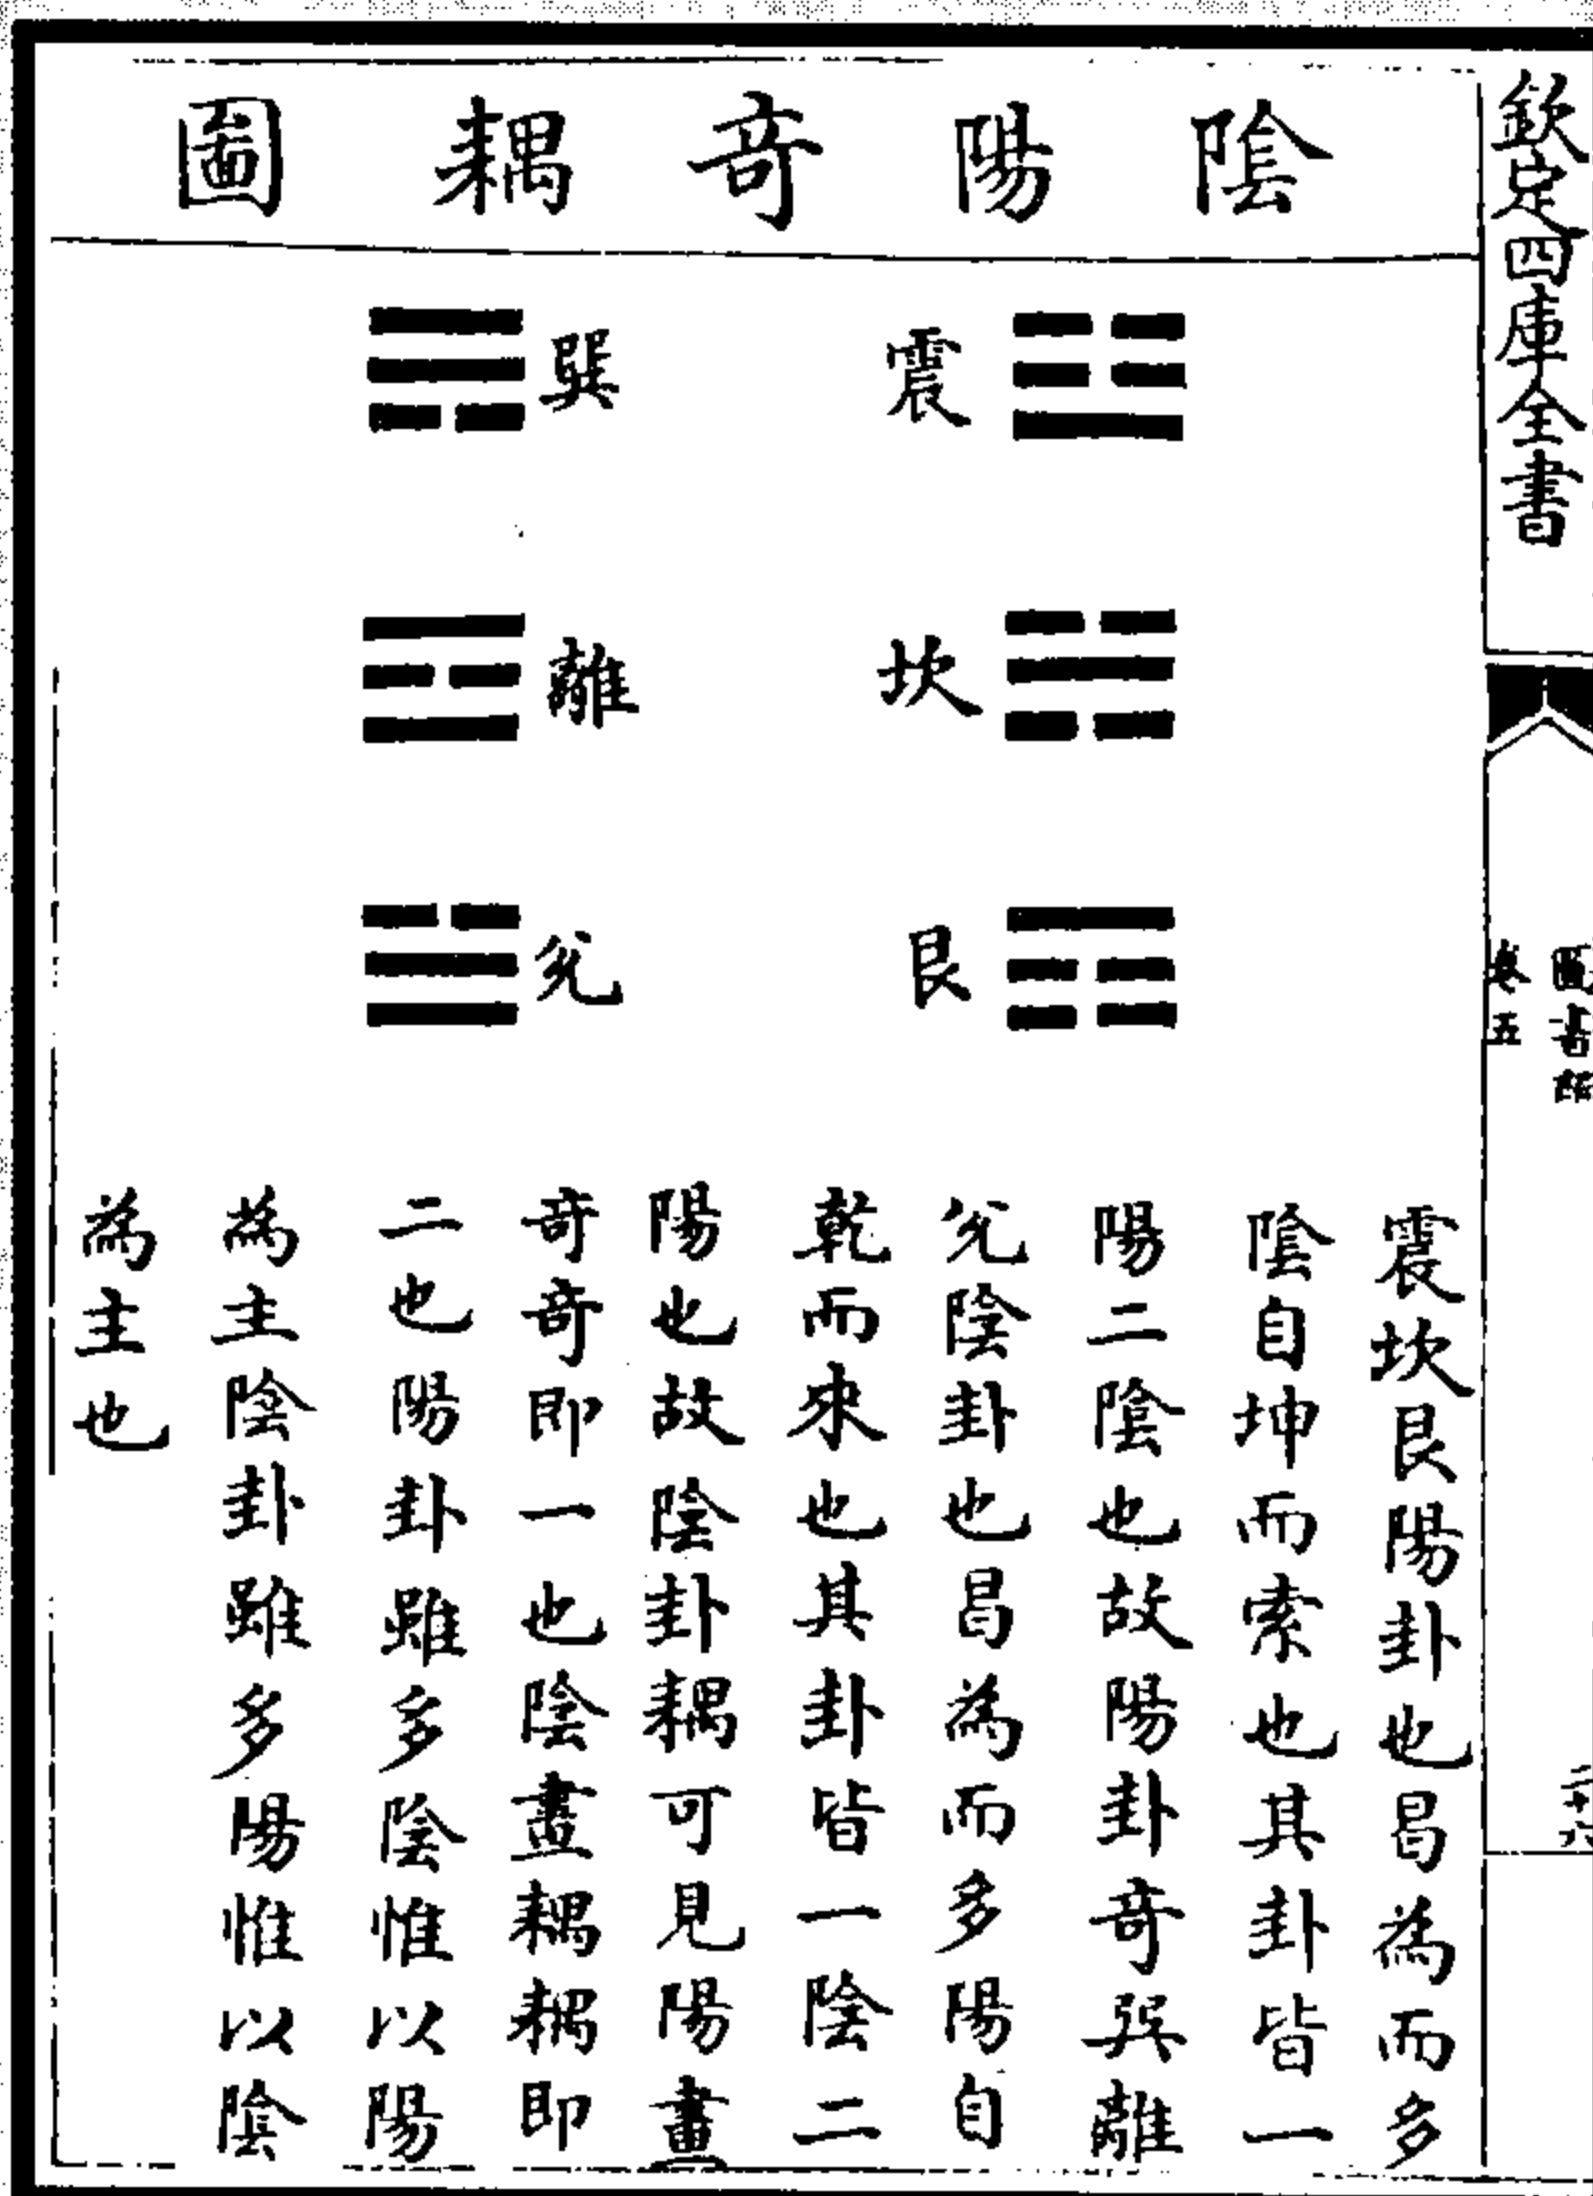 欽定四庫全書
圖書編
卷五
二十六
陰陽奇耦圖
震
坎
艮
巽
離
兊
震坎艮陽卦也曷為而多
陰自坤而索也其卦皆一
陽二陰也故陽卦奇巽離
兊陰卦也曷為而多陽自
乾而來也其卦皆一陰二
陽也故陰卦耦可見陽畫
奇奇即一也陰畫耦耦即
二也陽卦雖多陰惟以陽
為主陰卦雖多陽惟以陰
為主也